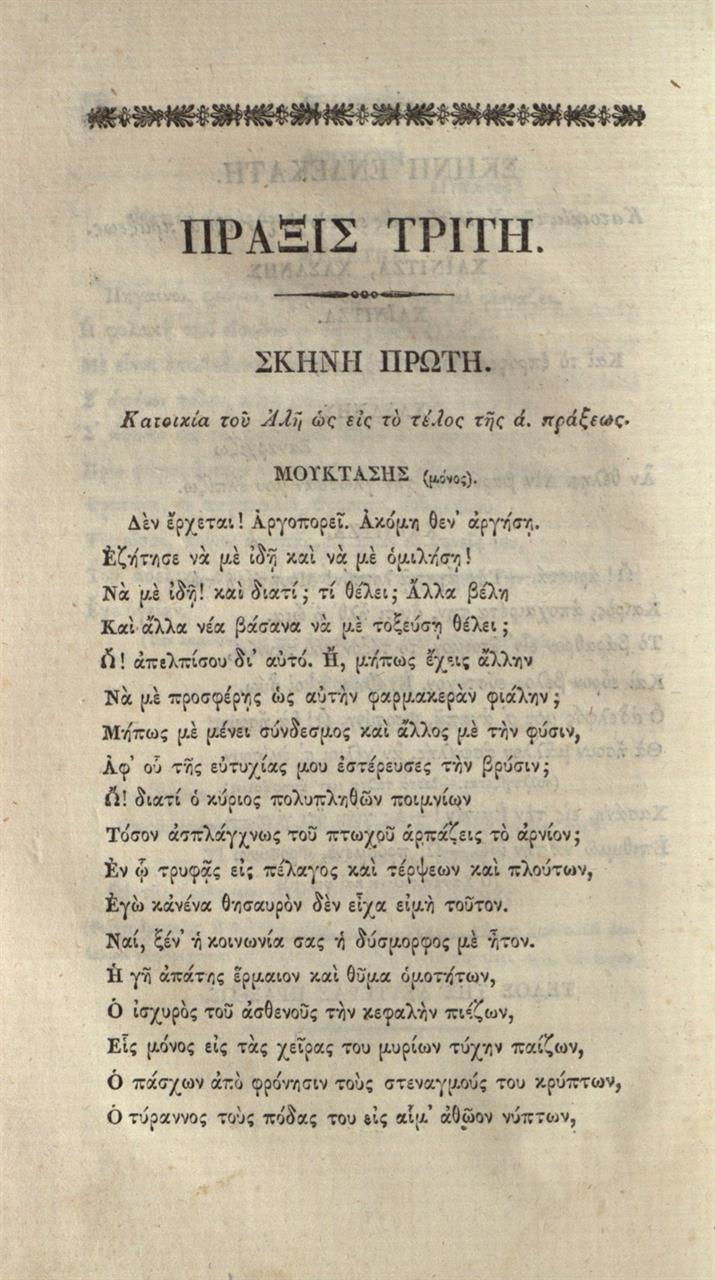 ΠΡΑΞΙΣ ΤΡΙΤΗ.
ΣΚΗΝΗ ΠΡΩΤΗ.
Κατοικία τοῦ Ἀλῆ ὡς εἰς τὸ τέλος τῆς ά. πράξεως.
ΜΟΥΚΤΑΣΗΣ (μόνος).
Δὲν ἔρχεται! Ἀργοπορεῖ. Ἀκόμη θεν' ἀργήσῃ.
Ἐζήτησε νὰ μὲ ἰδῇ καὶ νὰ μὲ ὁμιλήσῃ!
Νὰ μὲ ἰδῇ! καὶ διατί; τί θέλει; Ἄλλα βέλη
Καὶ ἄλλα νέα βάσανα νὰ μὲ τοξεύσῃ θέλει;
Ὦ! ἀπελπίσου δι' αὐτό. Ἤ, μήπως ἔχεις ἄλλην
Νὰ μὲ προσφέρῃς ὡς αὐτὴν φαρμακερὰν φιάλην;
Μήπως μὲ μένει σύνδεσμος καὶ ἄλλος μὲ τὴν φύσιν,
Ἀφ' οὗ τῆς εὐτυχίας μου ἐστέρευσες τὴν βρύσιν;
Ὦ! διατί ὁ κύριος πολυπληθῶν ποιμνίων
Τόσον ἀσπλάγχνως τοῦ πτωχοῦ ἁρπάζεις τὸ ἀρνίον;
Ἐν ᾧ τρυφᾷς εἰς πέλαγος καὶ τέρψεων καὶ πλούτων,
Ἐγὼ κἀνένα θησαυρὸν δὲν εἶχα εἰμὴ τοῦτον.
Ναί, ξέν' ἡ κοινωνία σας ἡ δύσμορφος μὲ ἦτον.
Ἡ γῆ ἀπάτης ἕρμαιον καὶ θῦμα ὁμοτήτων,
Ὁ ἰσχυρὸς τοῦ ἀσθενοῦς τὴν κεφαλὴν πιέζων,
Εἷς μόνος εἰς τὰς χεῖρας του μυρίων τύχην παίζων,
Ὁ πάσχων ἀπὸ φρόνησιν τοὺς στεναγμούς του κρύπτων,
Ὁ τύραννος τοὺς πόδας του εἰς αἷμ' ἀθῶον νύπτων,